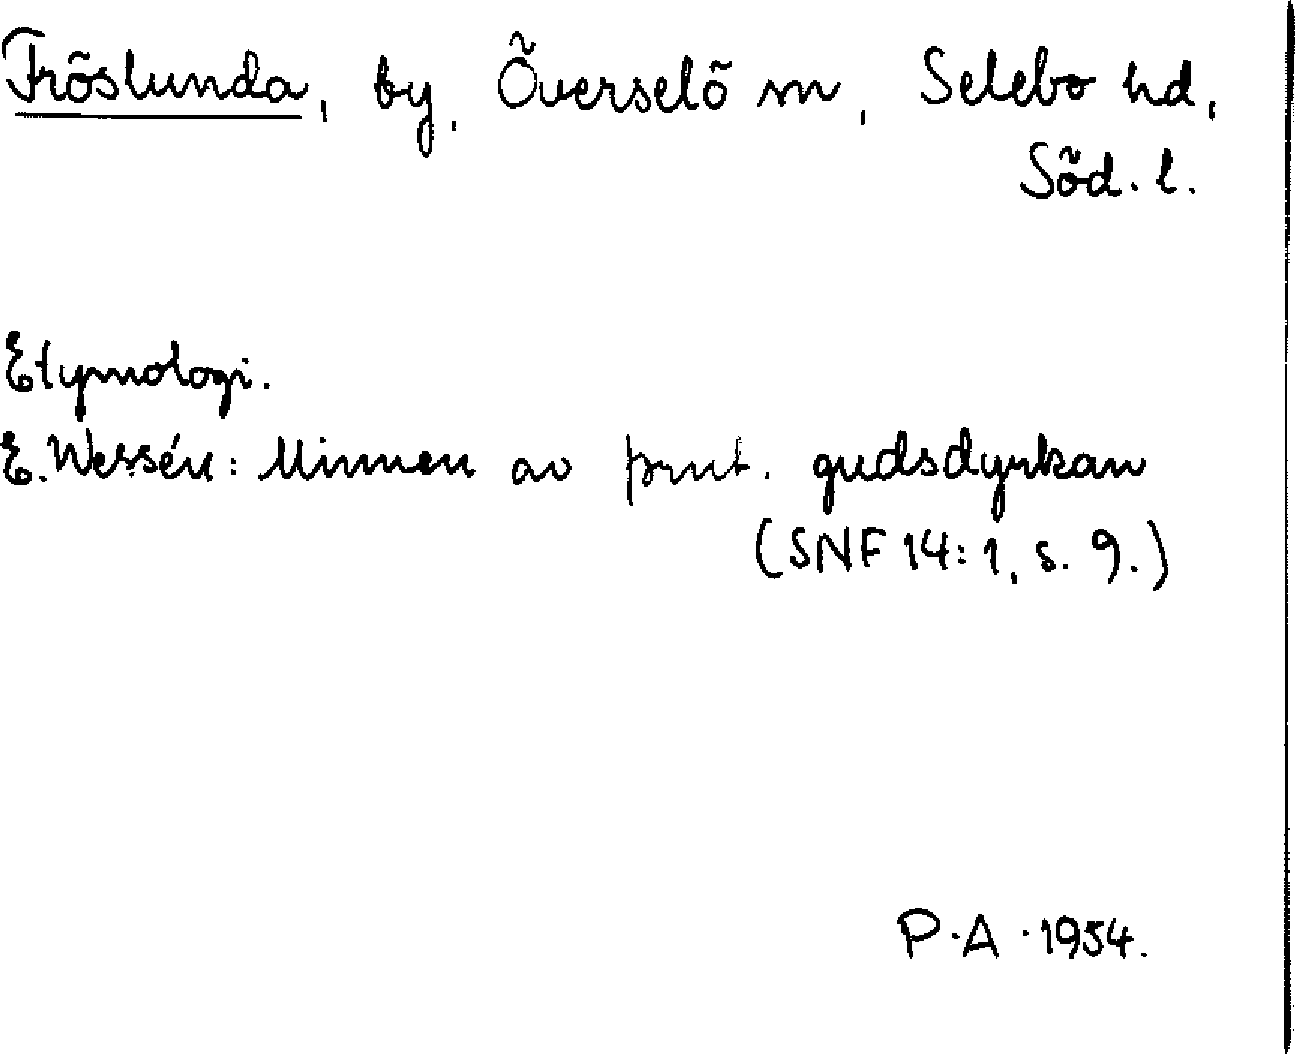 Fröslunda, by, Överselö sn, Selebo hd,
Söd. l.
Etymologi.
E. Wessén: Minnen av fornt. gudsdyrkan
(SNF 14:1, s. 9.)
P.A. 1954.